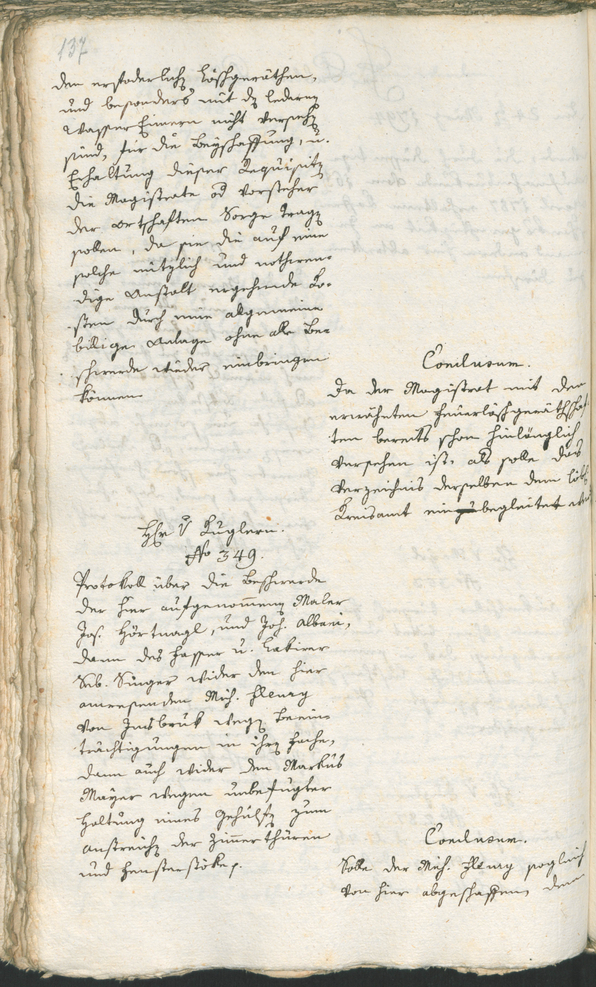 137
den erfoderlichen Löschgeräthen,
und besonders mit den ledernen
Wasser Eimern nicht versehen
sind, für die Beyschaffung, u.
Erhaltung dieser Requisiten
die Magistrate od Vorsteher
der Ortschaften Sorge tragen
sollen, da sie die auf eine
solche nützlich und nothwen-
dige Anstalt ergehende Ko-
sten durch eine allgemeine
billige Anlage ohne alle Be-
schwerde wieder einbringen
können
Conclusum.
Da der Magistrat mit den
erwähnten Feuerlöschgeräthschaf-
ten bereits schon hinlänglich
versehen ist, als solle das
Verzeichnis derselben dem löbl
Kreisamt einbegleitet
Hr V Kuglern.
No 349.
Protokoll über die Beschwerde
der hier aufgenommenen Maler
Jos. Hörtnagl, und Joh. Alban,
dann des Fasser u. Lakirer
Seb. Singer wider den hier
anwesenden Mich. Flenry
von Insbruk wegen Beein-
trächtigungen in ihren Fache,
dann auch wider den Markus
Mayer wegen unbefugter
Haltung eines Gehülfen zum
Anstreichen der Zimmerthüren
und Fensterstöke.
Conclusum.
Solle der Mich. Flenry sogleich
von hier abgeschaffen, dem